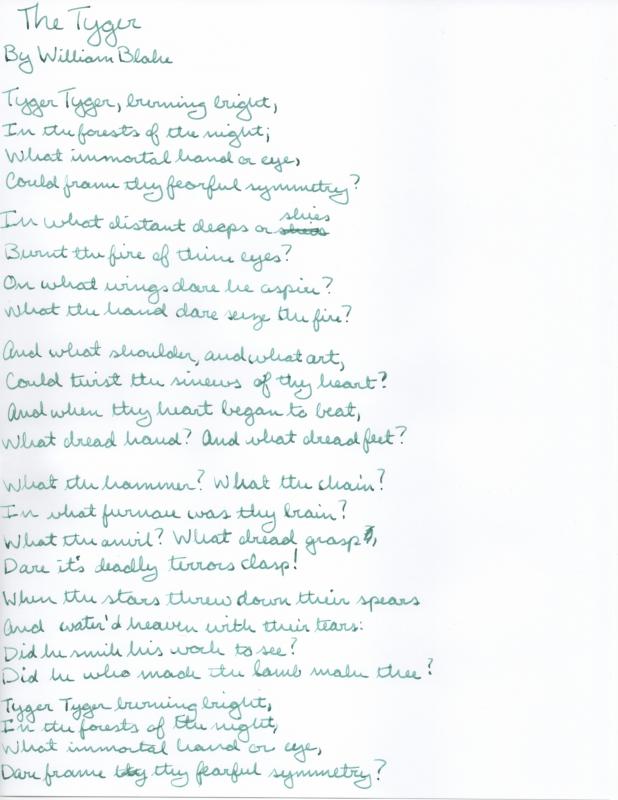 The Tyger
By William Blake
Tyger Tyger, burning bright,
In the forests of the night;
What immortal hand or eye,
Could frame thy fearful symmetry?
In what distant deeps or skies
Burnt the fire of thine eyes?
On what wings dare he aspire?
What the hand dare seize the fire?
And what shoulder, and what art,
Could twist the sinews of thy heart?
And when thy heart began to beat,
What dread hand? And what dread feet?
What the hammer? What the chain?
In what furnace was thy brain?
What the anvil? What dread grasp,
Dare it's deadly terrors clasp!
When the stars threw down their spears
And water'd heaven with their tears:
Did he smile his work to see?
Did he who made the lamb make thee?
Tyger Tyger burning bright,
In the forests of the night,
What immortal hand or eye,
Dare frame thy fearful symmetry?